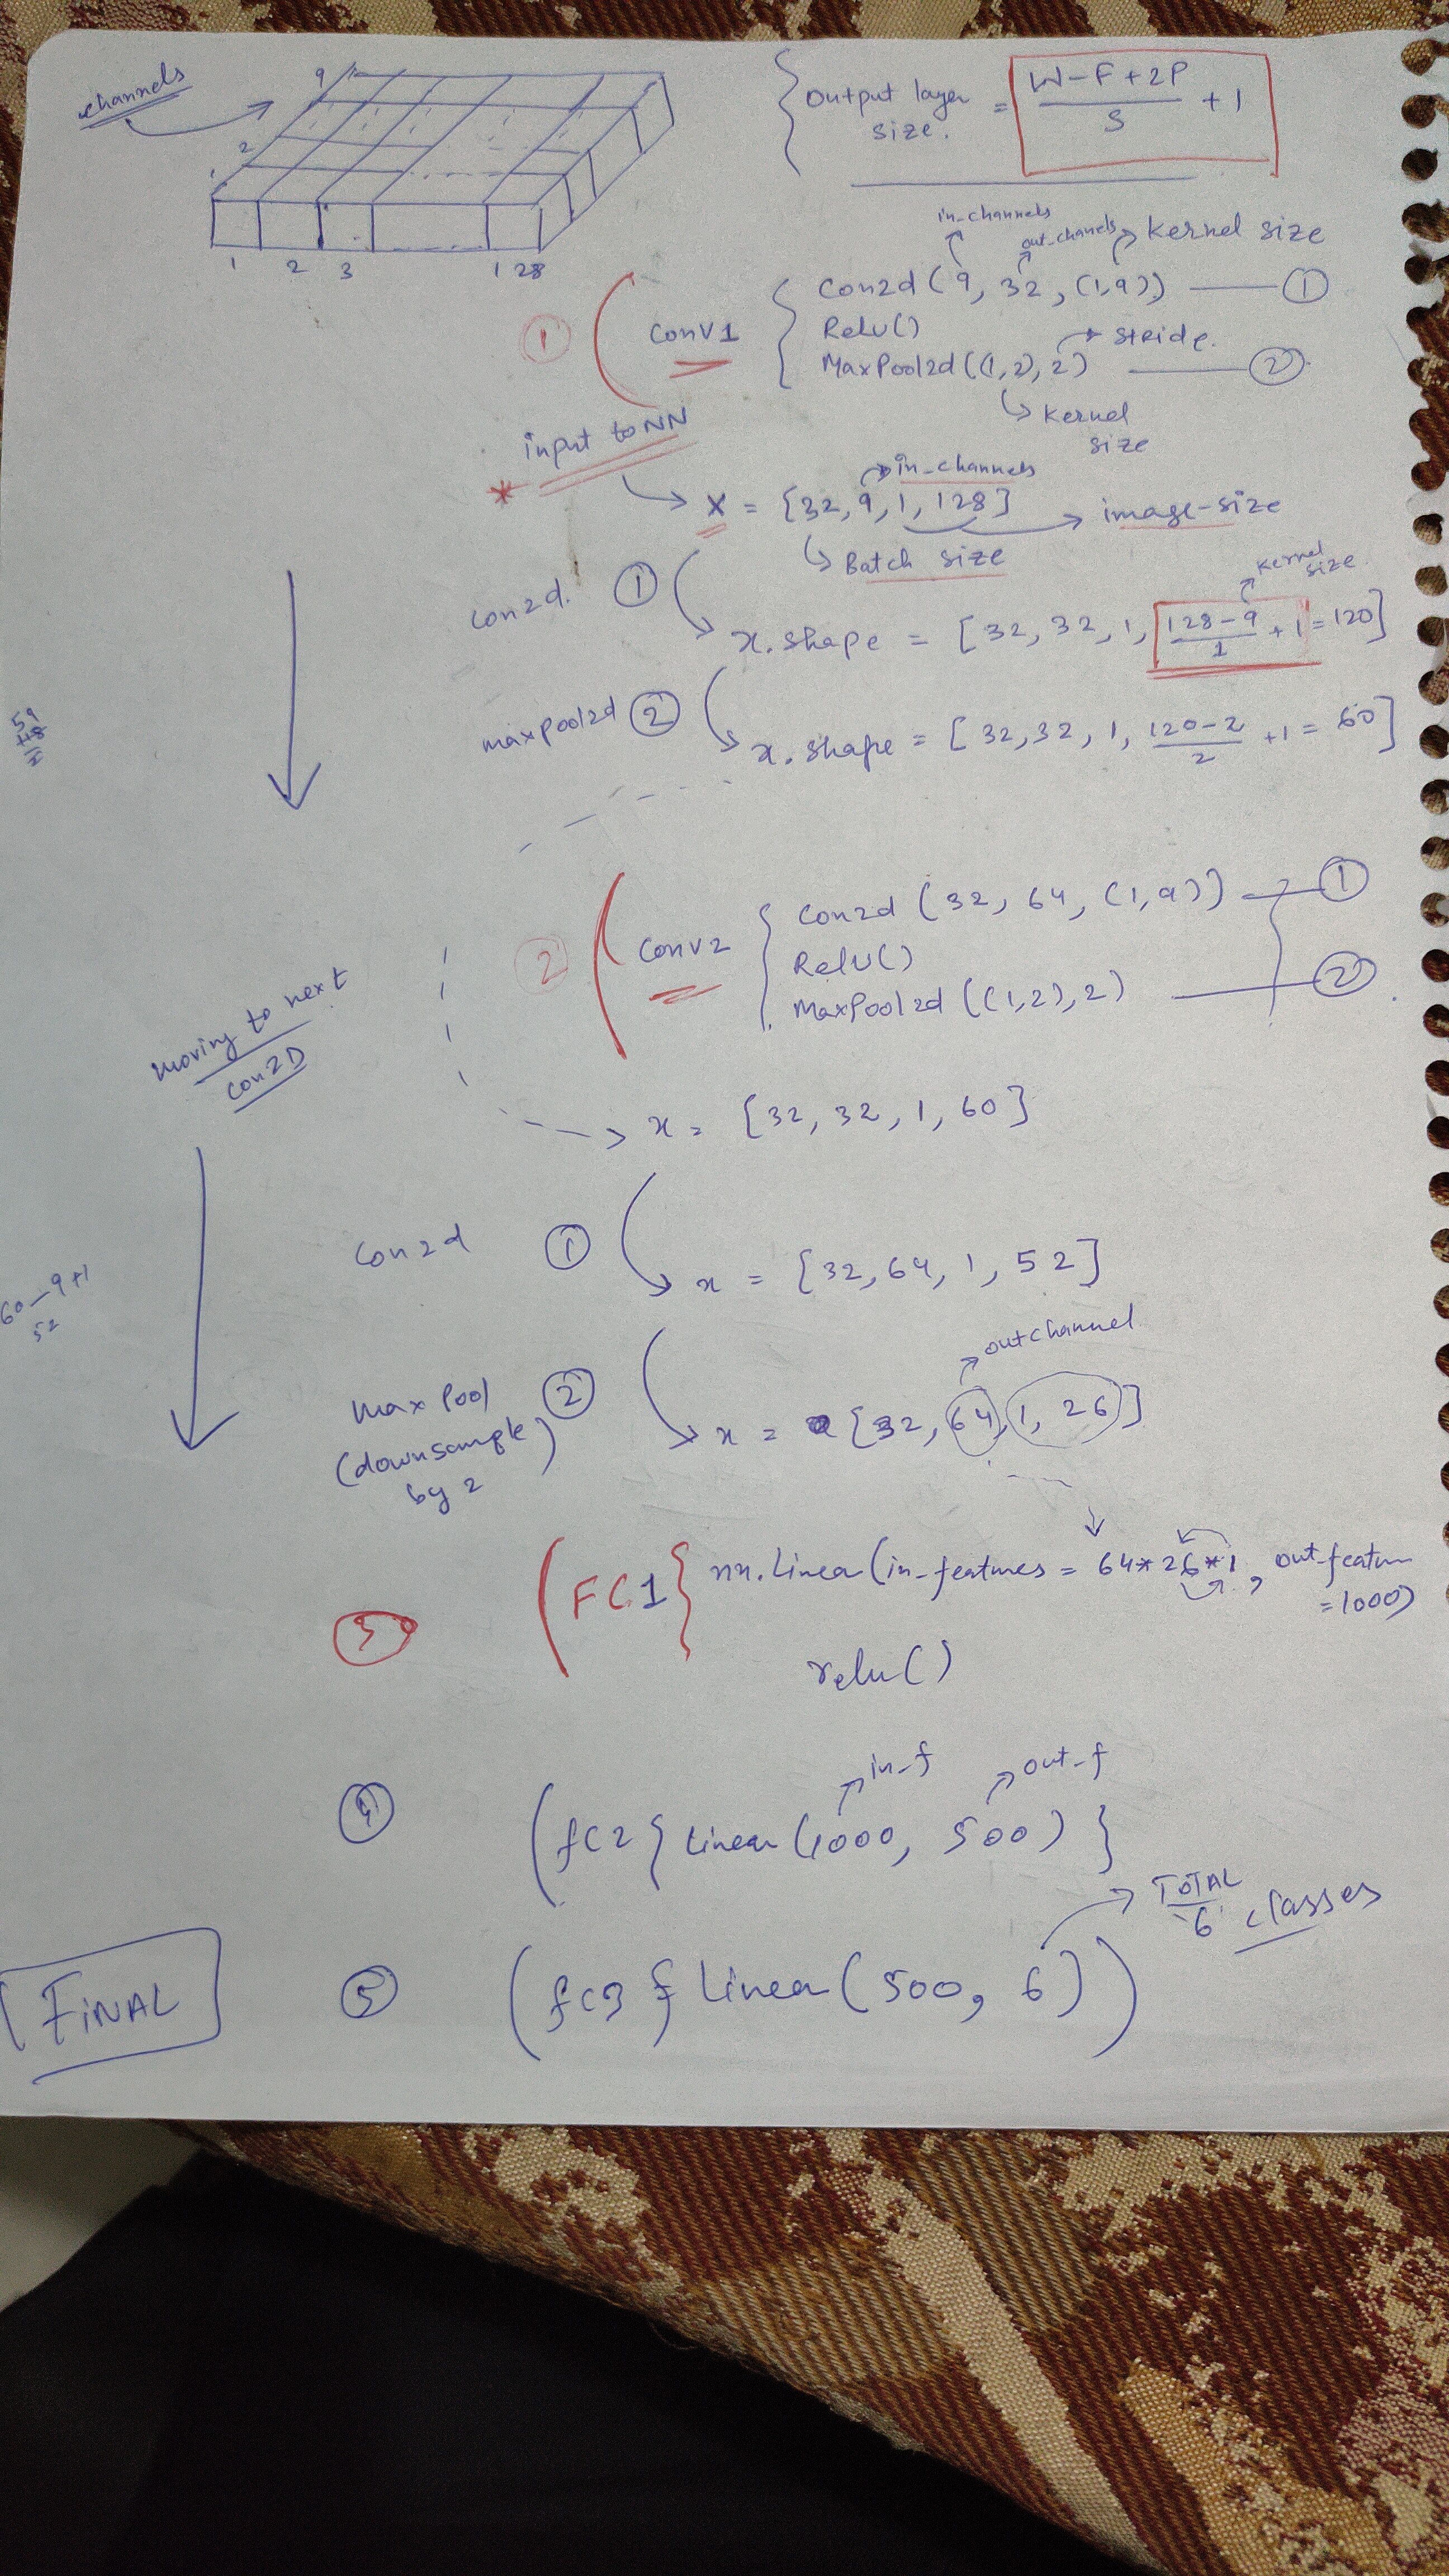 channels
9
2
1
1 2 3 128
Output layer size. = W-F+2P / S + 1
in_channels
out_chanels
Kernel size
①
conv1
Con2d (9, 32, (1,9)) ①
Relu()
stride.
MaxPool2d((1,2), 2) ②
Kernel size
* input to NN
in_channels
X = [32, 9, 1, 128]
image-size
Batch size
Kernel size
con2d. ①
x.shape = [32, 32, 1, 128-9 / 1 + 1 = 120]
maxpool2d ②
x.shape = [32, 32, 1, 120-2 / 2 + 1 = 60]
②
conv2
Con2d (32, 64, (1,9)) ①
Relu()
MaxPool2d ((1,2), 2) ②
moving to next
con2D
x = [32, 32, 1, 60]
Con2d ①
x = [32, 64, 1, 52]
60-9+1
52
outchannel
Max Pool ②
(downsample)
by 2
x = [32, 64, 1, 26]
③
(FC1 { nn.Linear(in-features = 64*26*1, out-featur = 1000)
relu()
in-f
out-f
④ (fc2 { Linear (1000, 500) }
TOTAL
6 classes
FINAL
⑤ (fc3 { Linear (500, 6))